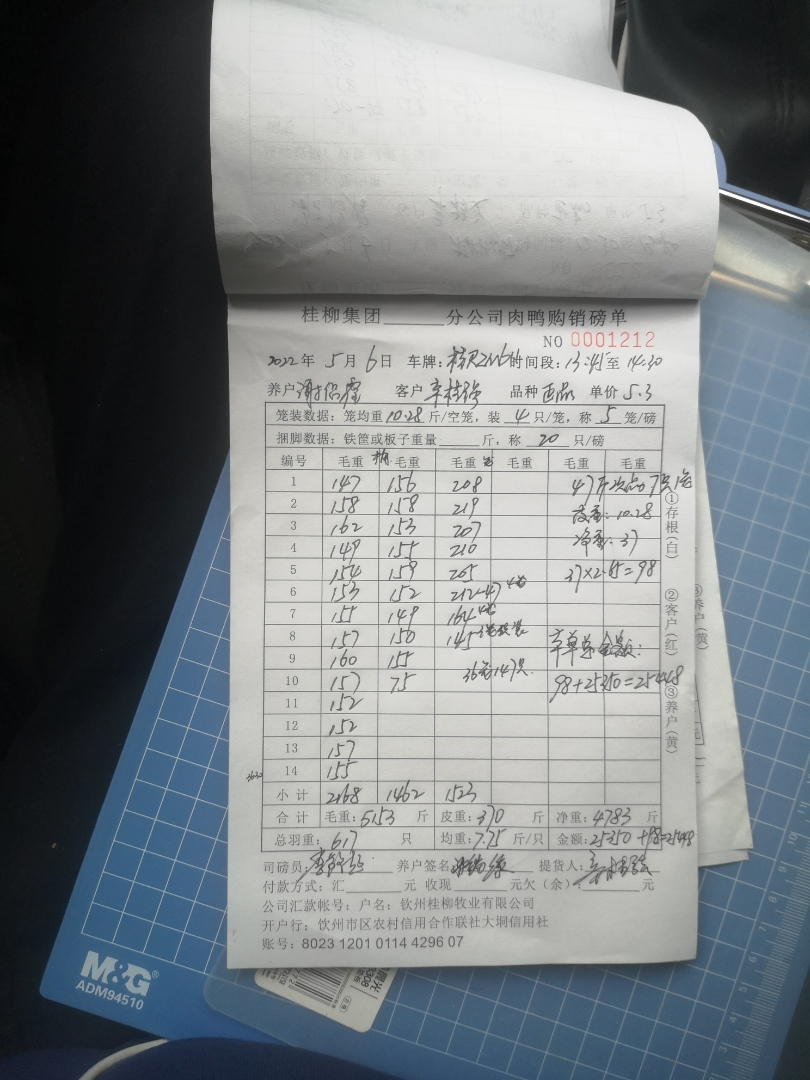 桂柳集团______分公司肉鸭购销磅单
NO 0001212
2022年 5月 6日 车牌: 时间段: 13:45至 14:30
养户 客户 品种 单价 5.3
笼装数据: 笼均重 10.28 斤/空笼, 装 4 只/笼, 称 5 笼/磅
捆脚数据: 铁筐或板子重量______斤, 称 20 只/磅
编号 毛重 毛重 毛重 毛重 毛重 毛重
1 147 156 208 47斤次品
2 158 158 219 皮重: 10.28
3 162 153 207 净重: 37
4 149 155 210
5 154 159 205 37×2.65=98
6 153 152 212-47
7 155 149 164
8 157 150 145
9 160 155
10 157 75 36 147只 98+25350=25448
11 152
12 152
13 157
14 155
小计 2168 1462 1523
合计 毛重: 5153 斤 皮重: 370 斤 净重: 4783 斤
总羽重: 617 只 均重: 7.75 斤/只 金额: 25350+98=25448
司磅员: 养户签名: 提货人:
付款方式: 汇______元 收现______元欠(余):______元
公司汇款帐号: 户名: 钦州桂柳牧业有限公司
开户行: 钦州市区农村信用合作联社大垌信用社
账号: 8023 1201 0114 4296 07
①存根(白) ②客户(红) ③养户(黄)
M&G
ADM94510